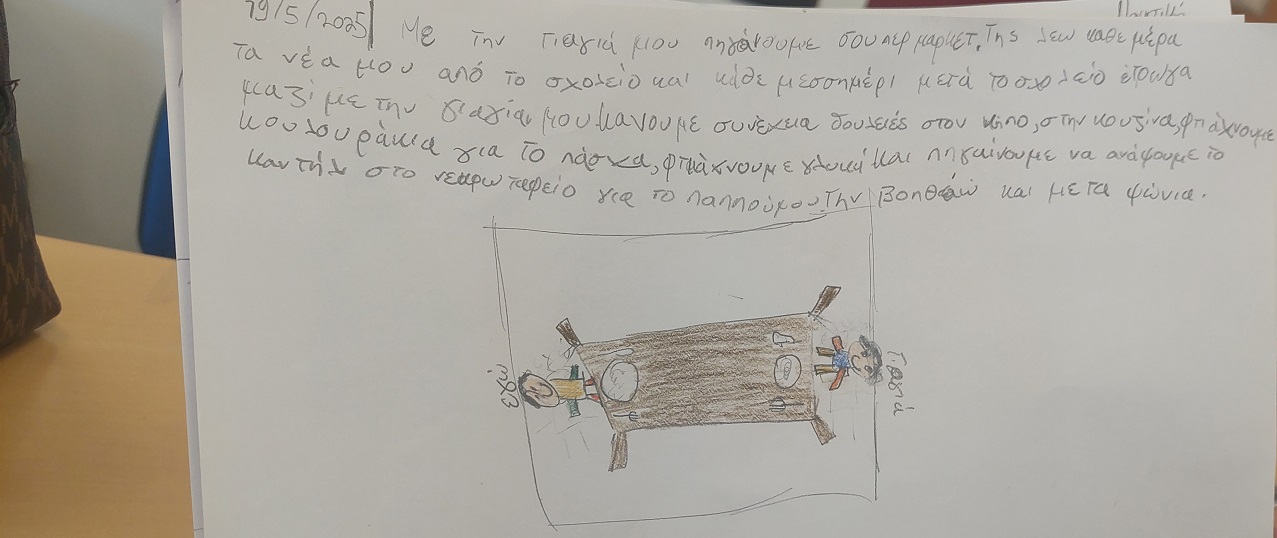 19/5/2025 Με την γιαγιά μου πηγάνουμε σουπερμαρκετ. Της λεω καθε μέρα
τα νέα μου από το σχολείο και κάθε μεσσημέρι μετά το σχολείο έτρωγα
μαζί με την γιαγιά μου κανουμε συνέχεια δουλειές στον κήπο, στην κουζίνα, φτιάχνουμε
κουλουράκια για το πάσχα, φτιάχνουμε γλυκά και πηγαίνουμε να ανάψουμε το
καντήλι στο νεκρωταφείο για το παππού μου. Την βοηθάω και μετα ψώνια.
Εγώ
Γιαγιά